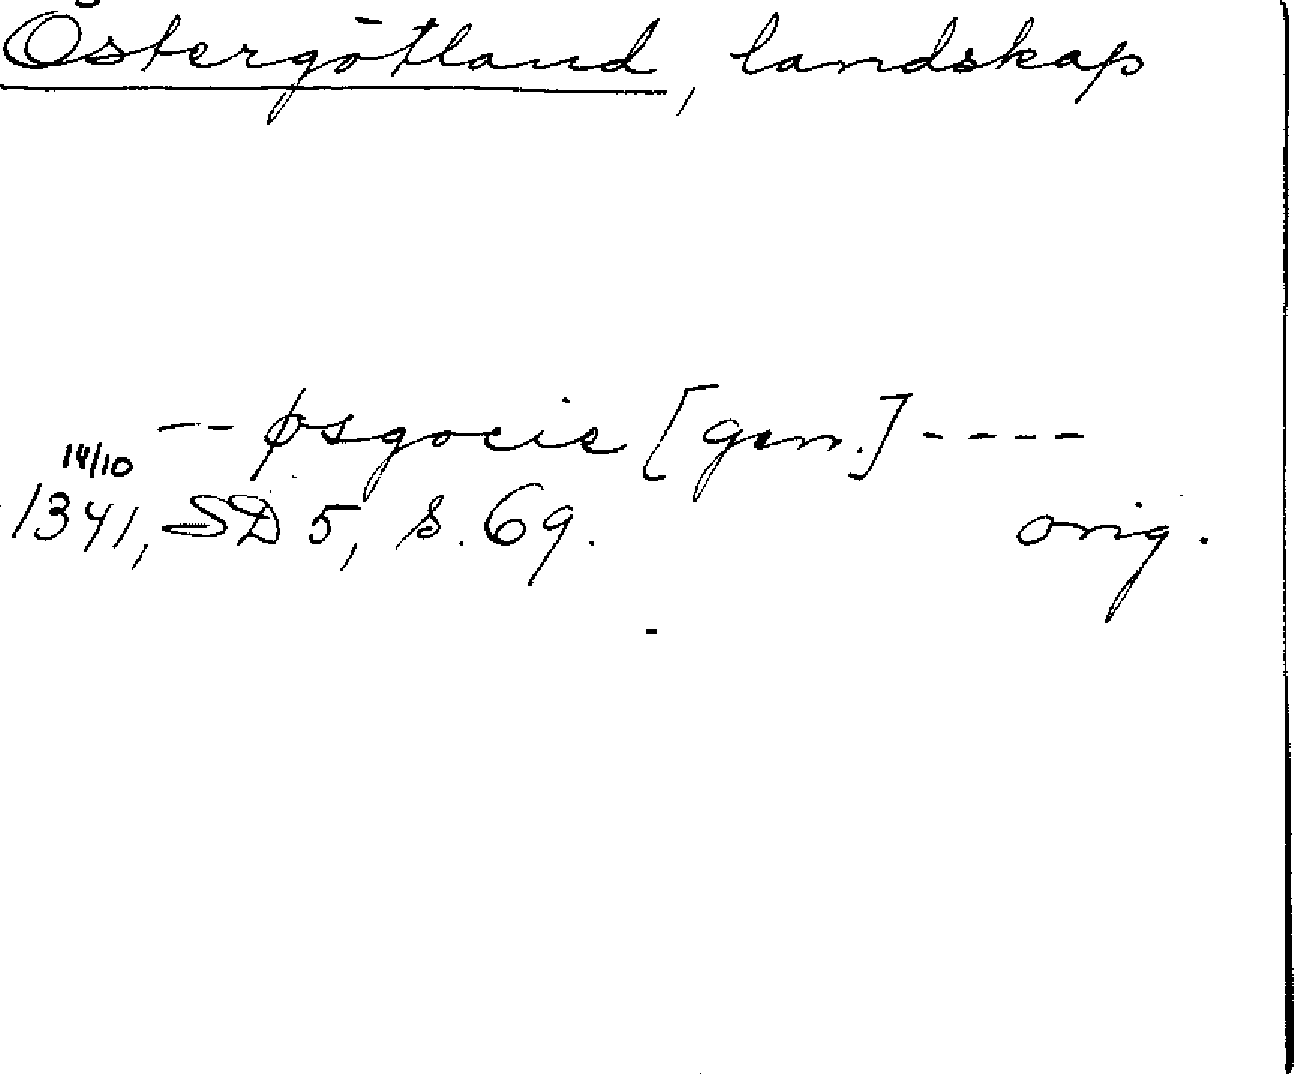 Östergötland, landskap
-- øsgocie [gen.] ----
14/10
1341, SD 5, s. 69. orig.